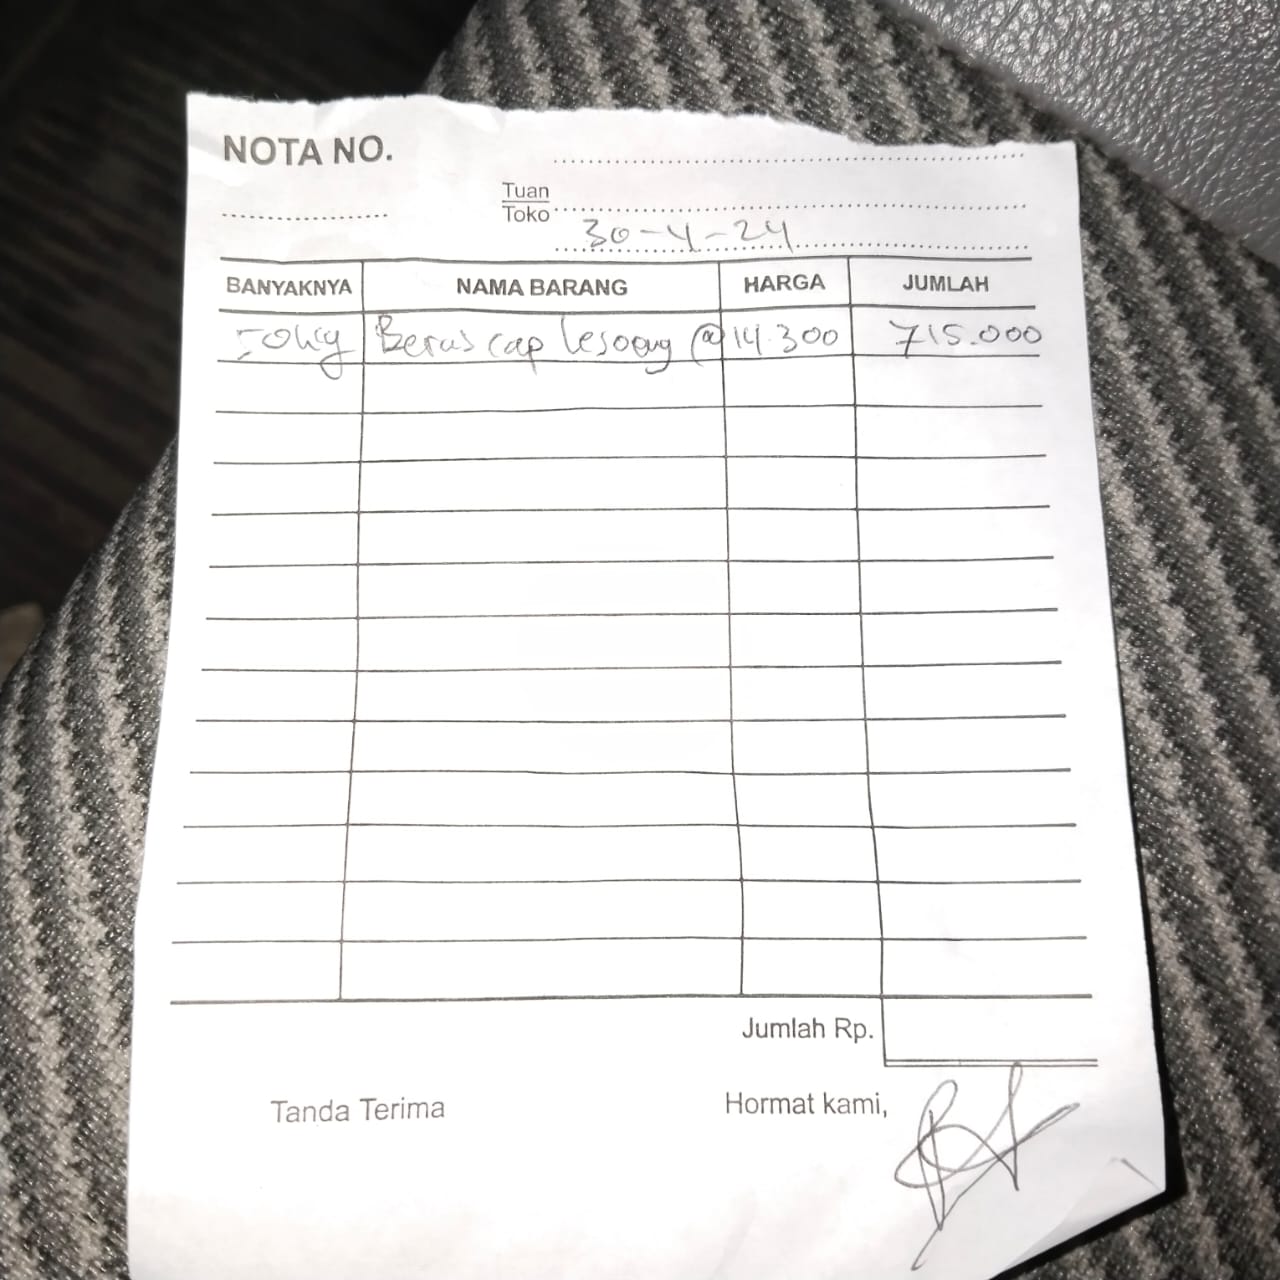 NOTA NO.
Tuan
Toko
30-4-24
BANYAKNYA NAMA BARANG HARGA JUMLAH
50kg Beras cap lesoeng @ 14.300 715.000
Jumlah Rp.
Tanda Terima Hormat kami,